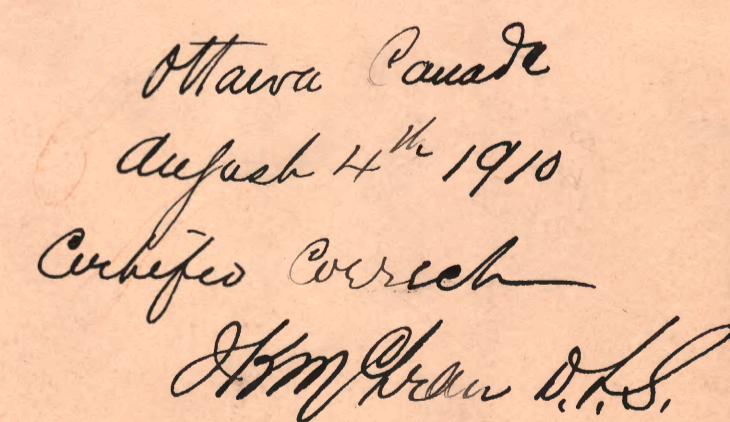 Ottawa Canada
August 4th 1910
Certified Correct
J K McLean D.L.S.